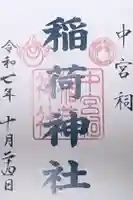 中宮祠
稲荷神社
令和七年十月二十四日